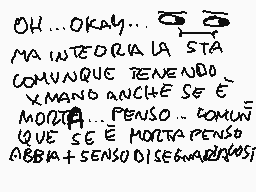 OH...OKAY...
MA IN TEORIA LA STA
COMUNQUE TENENDO
X MANO ANCHE SE È
MORTA... PENSO.. COMUN
QUE SE È MORTA PENSO
ABBIA + SENSO DISEGNARLA COSÌ